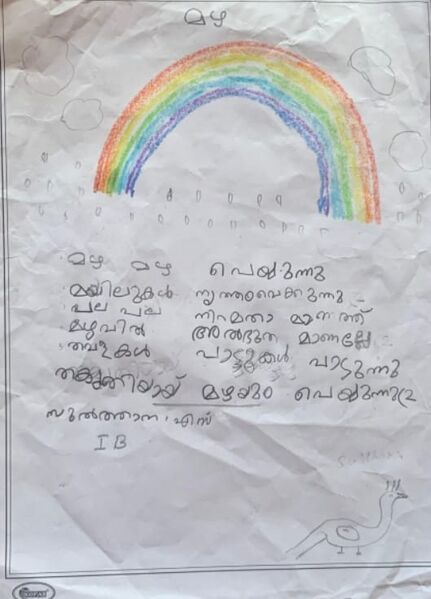 മഴ
മഴ മഴ പെയ്യുന്നു
മയിലുകൾ നൃത്തംവെക്കുന്നു
പല പല നിറമതാ മാനത്ത്
മഴവിൽ അൽഭുത മാണല്ലേ
തവളകൾ പാട്ടുകൾ പാടുന്നു
മഴയും പെയ്യുന്നു
സുൽത്താന എസ്
I B